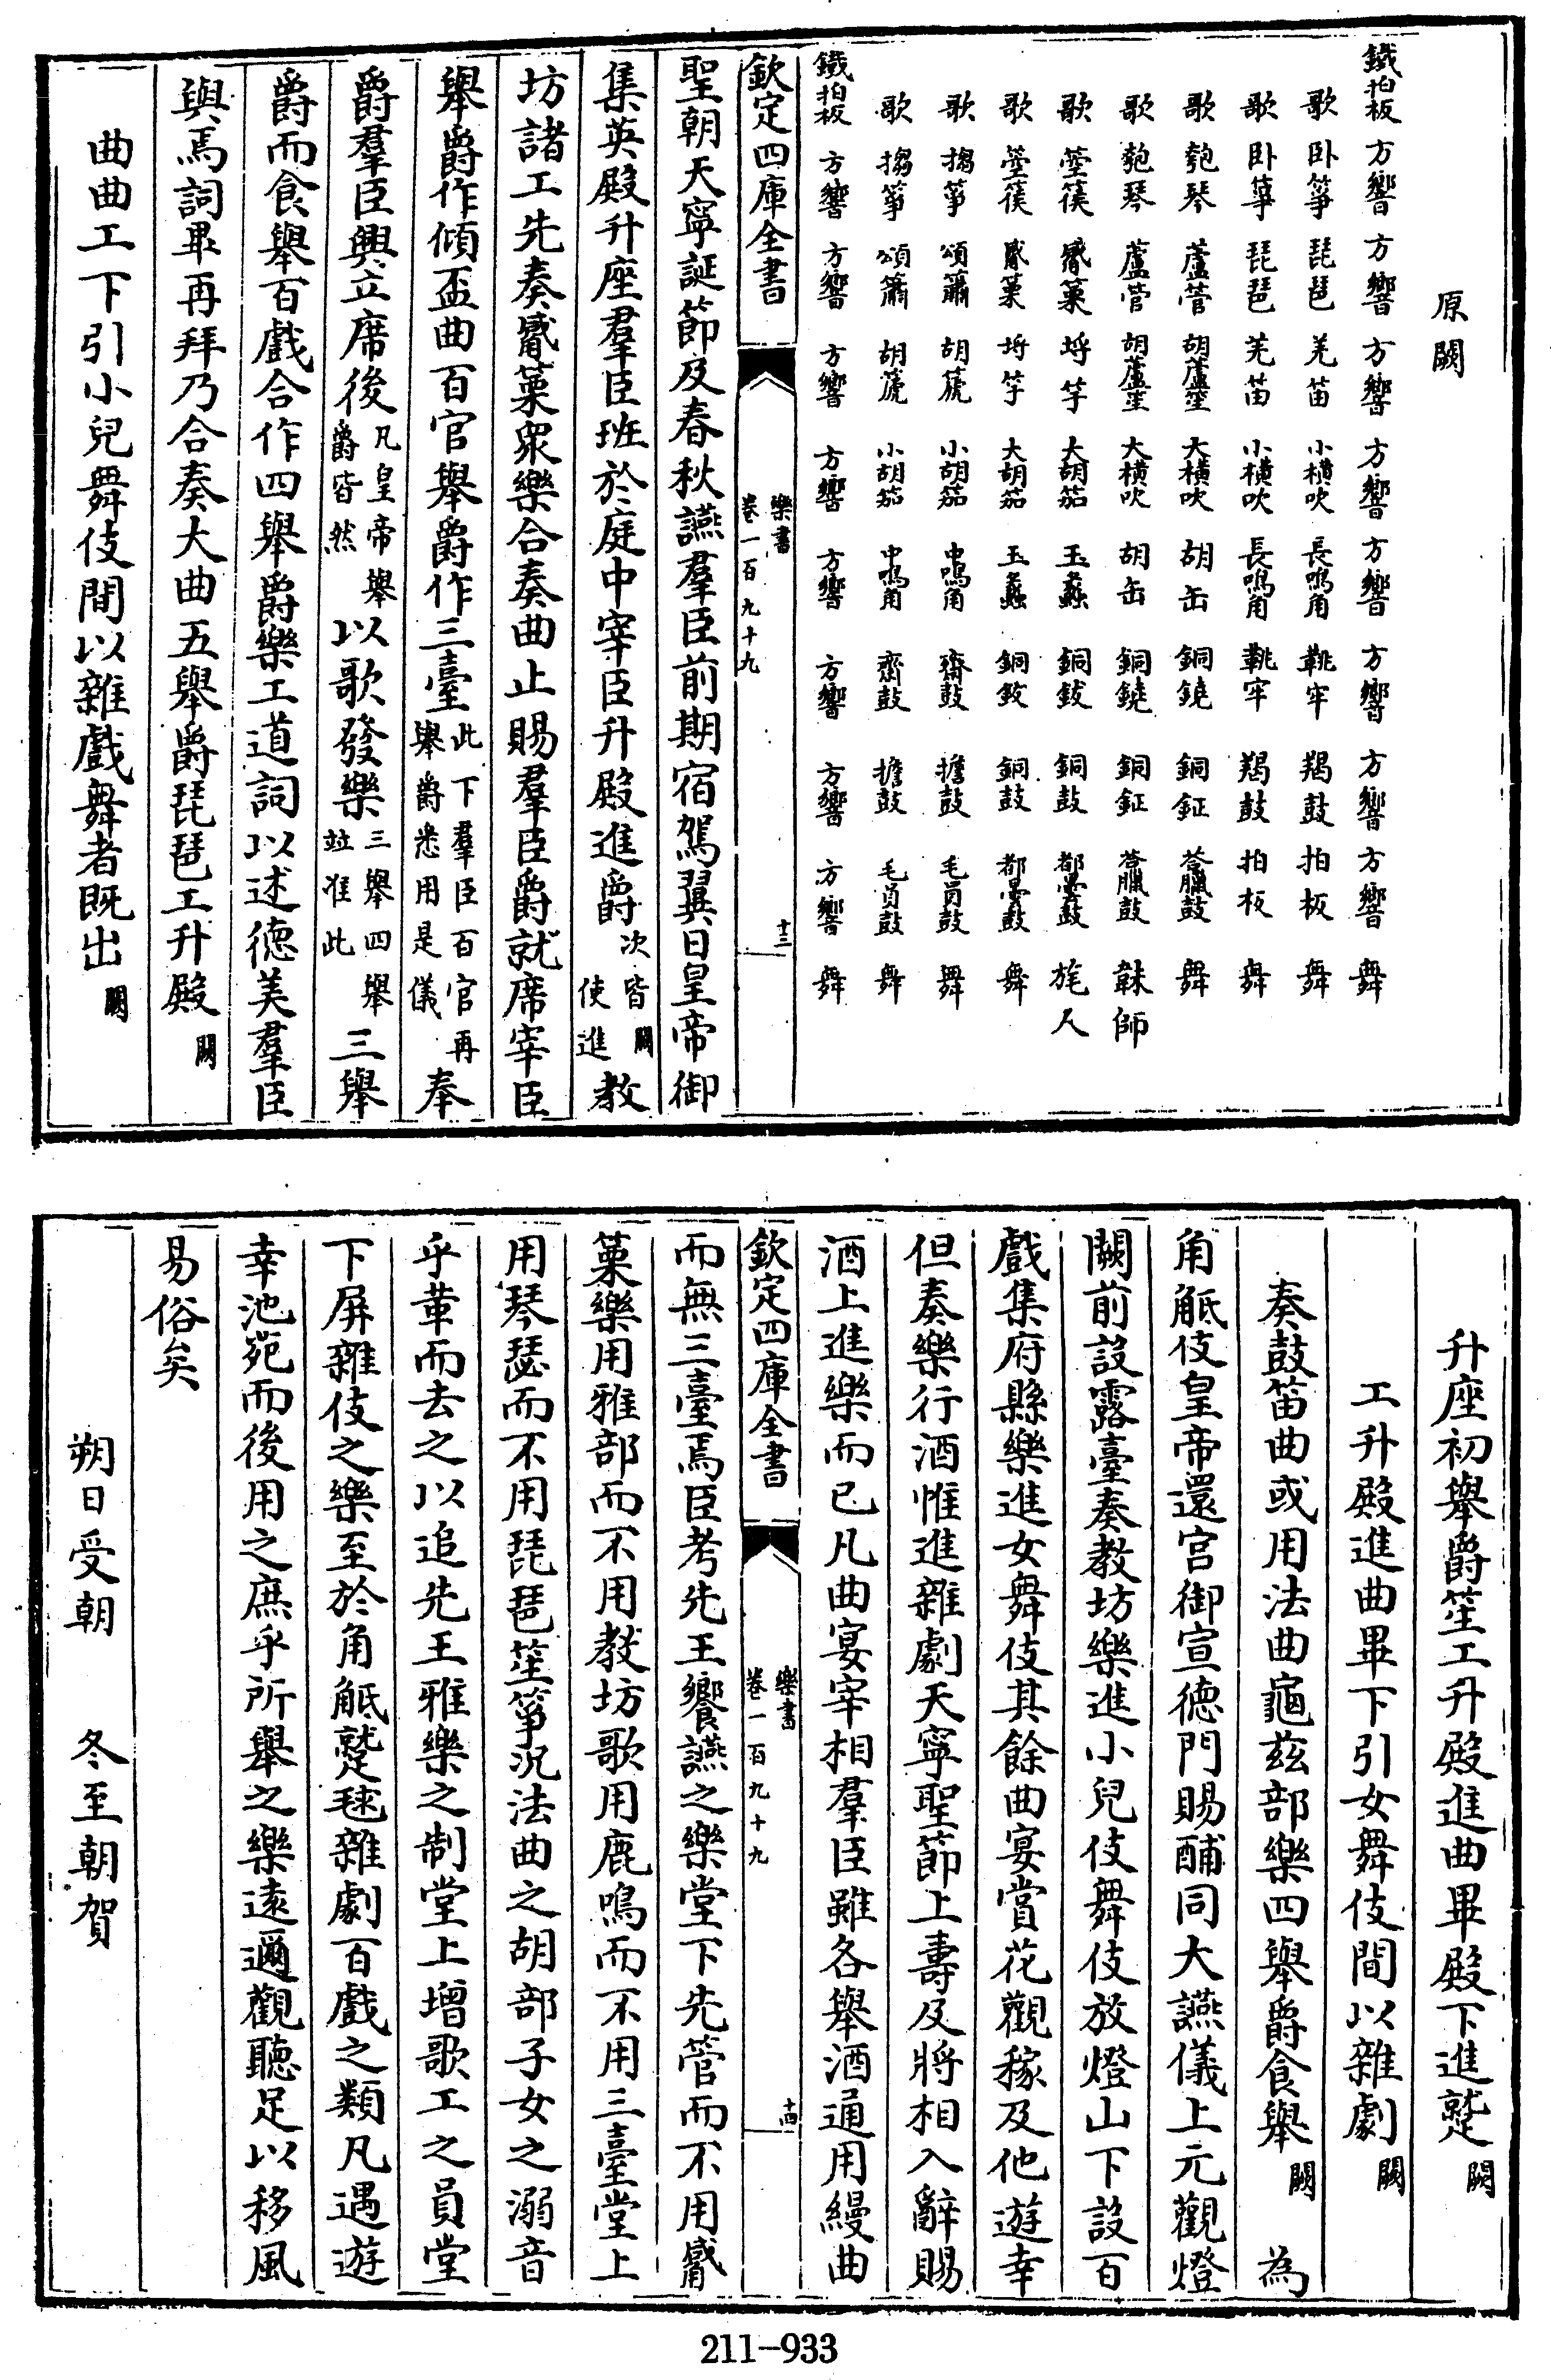 原闕
鐵拍板 方響 方響 方響 方響 方響 方響 方響 方響 舞
歌 卧箏 琵琶 羌笛 小橫吹 長鳴角 鞉牢 羯鼓 拍板 舞
歌 卧箏 琵琶 羌笛 小橫吹 長鳴角 鞉牢 羯鼓 拍板 舞
歌 匏琴 蘆管 胡蘆笙 大橫吹 胡缶 銅鐃 銅鉦 荅臘鼓 舞
歌 匏琴 蘆管 胡蘆笙 大橫吹 胡缶 銅鐃 銅鉦 荅臘鼓 韎師
歌 箜篌 觱篥 埙竽 大胡笳 玉蠡 銅鈸 銅鼓 都曇鼓 旄人
歌 箜篌 觱篥 埙竽 大胡笳 玉蠡 銅鈸 銅鼓 都曇鼓 舞
歌 搊箏 頌簫 胡篪 小胡笳 中鳴角 齋鼓 擔鼓 毛員鼓 舞
歌 搊箏 頌簫 胡篪 小胡笳 中鳴角 齋鼓 擔鼓 毛員鼓 舞
鐵拍板 方響 方響 方響 方響 方響 方響 方響 方響 舞
欽定四庫全書 樂書 卷一百九十九 十三
聖朝天寧誕節及春秋讌羣臣前期宿駕翼日皇帝御
集英殿升座羣臣班於庭中宰臣升殿進爵次皆闕使進教
坊諸工先奏觱篥衆樂合奏曲止賜羣臣爵就席宰臣
舉爵作傾盃曲百官舉爵作三臺此下羣臣百官再舉爵悉用是儀奉
爵羣臣興立席後凡皇帝舉爵皆然以歌發樂三舉四舉竝准此三舉
爵而食舉百戲合作四舉爵樂工道詞以述德美羣臣
與焉詞畢再拜乃合奏大曲五舉爵琵琶工升殿闕
曲曲工下引小兒舞伎間以雜戲舞者既出闕
升座初舉爵笙工升殿進曲畢殿下進蹵闕
工升殿進曲畢下引女舞伎間以雜劇闕
奏鼓笛曲或用法曲龜兹部樂四舉爵食舉闕為
角觝伎皇帝還宫御宣德門賜酺同大讌儀上元觀燈
闕前設露臺奏教坊樂進小兒伎舞伎放燈山下設百
戲集府縣樂進女舞伎其餘曲宴賞花觀稼及他遊幸
但奏樂行酒惟進雜劇天寧聖節上壽及將相入辭賜
酒上進樂而已凡曲宴宰相羣臣雖各舉酒通用縵曲
欽定四庫全書 樂書 卷一百九十九 十四
而無三臺焉臣考先王饗讌之樂堂下先管而不用觱
篥樂用雅部而不用教坊歌用鹿鳴而不用三臺堂上
用琴瑟而不用琵琶笙箏况法曲之胡部子女之溺音
乎革而去之以追先王雅樂之制堂上增歌工之員堂
下屏雜伎之樂至於角觝蹵毬雜劇百戲之類凡遇遊
幸池苑而後用之庶乎所舉之樂逺邇觀聽足以移風
易俗矣
朔日受朝 冬至朝賀
211-933